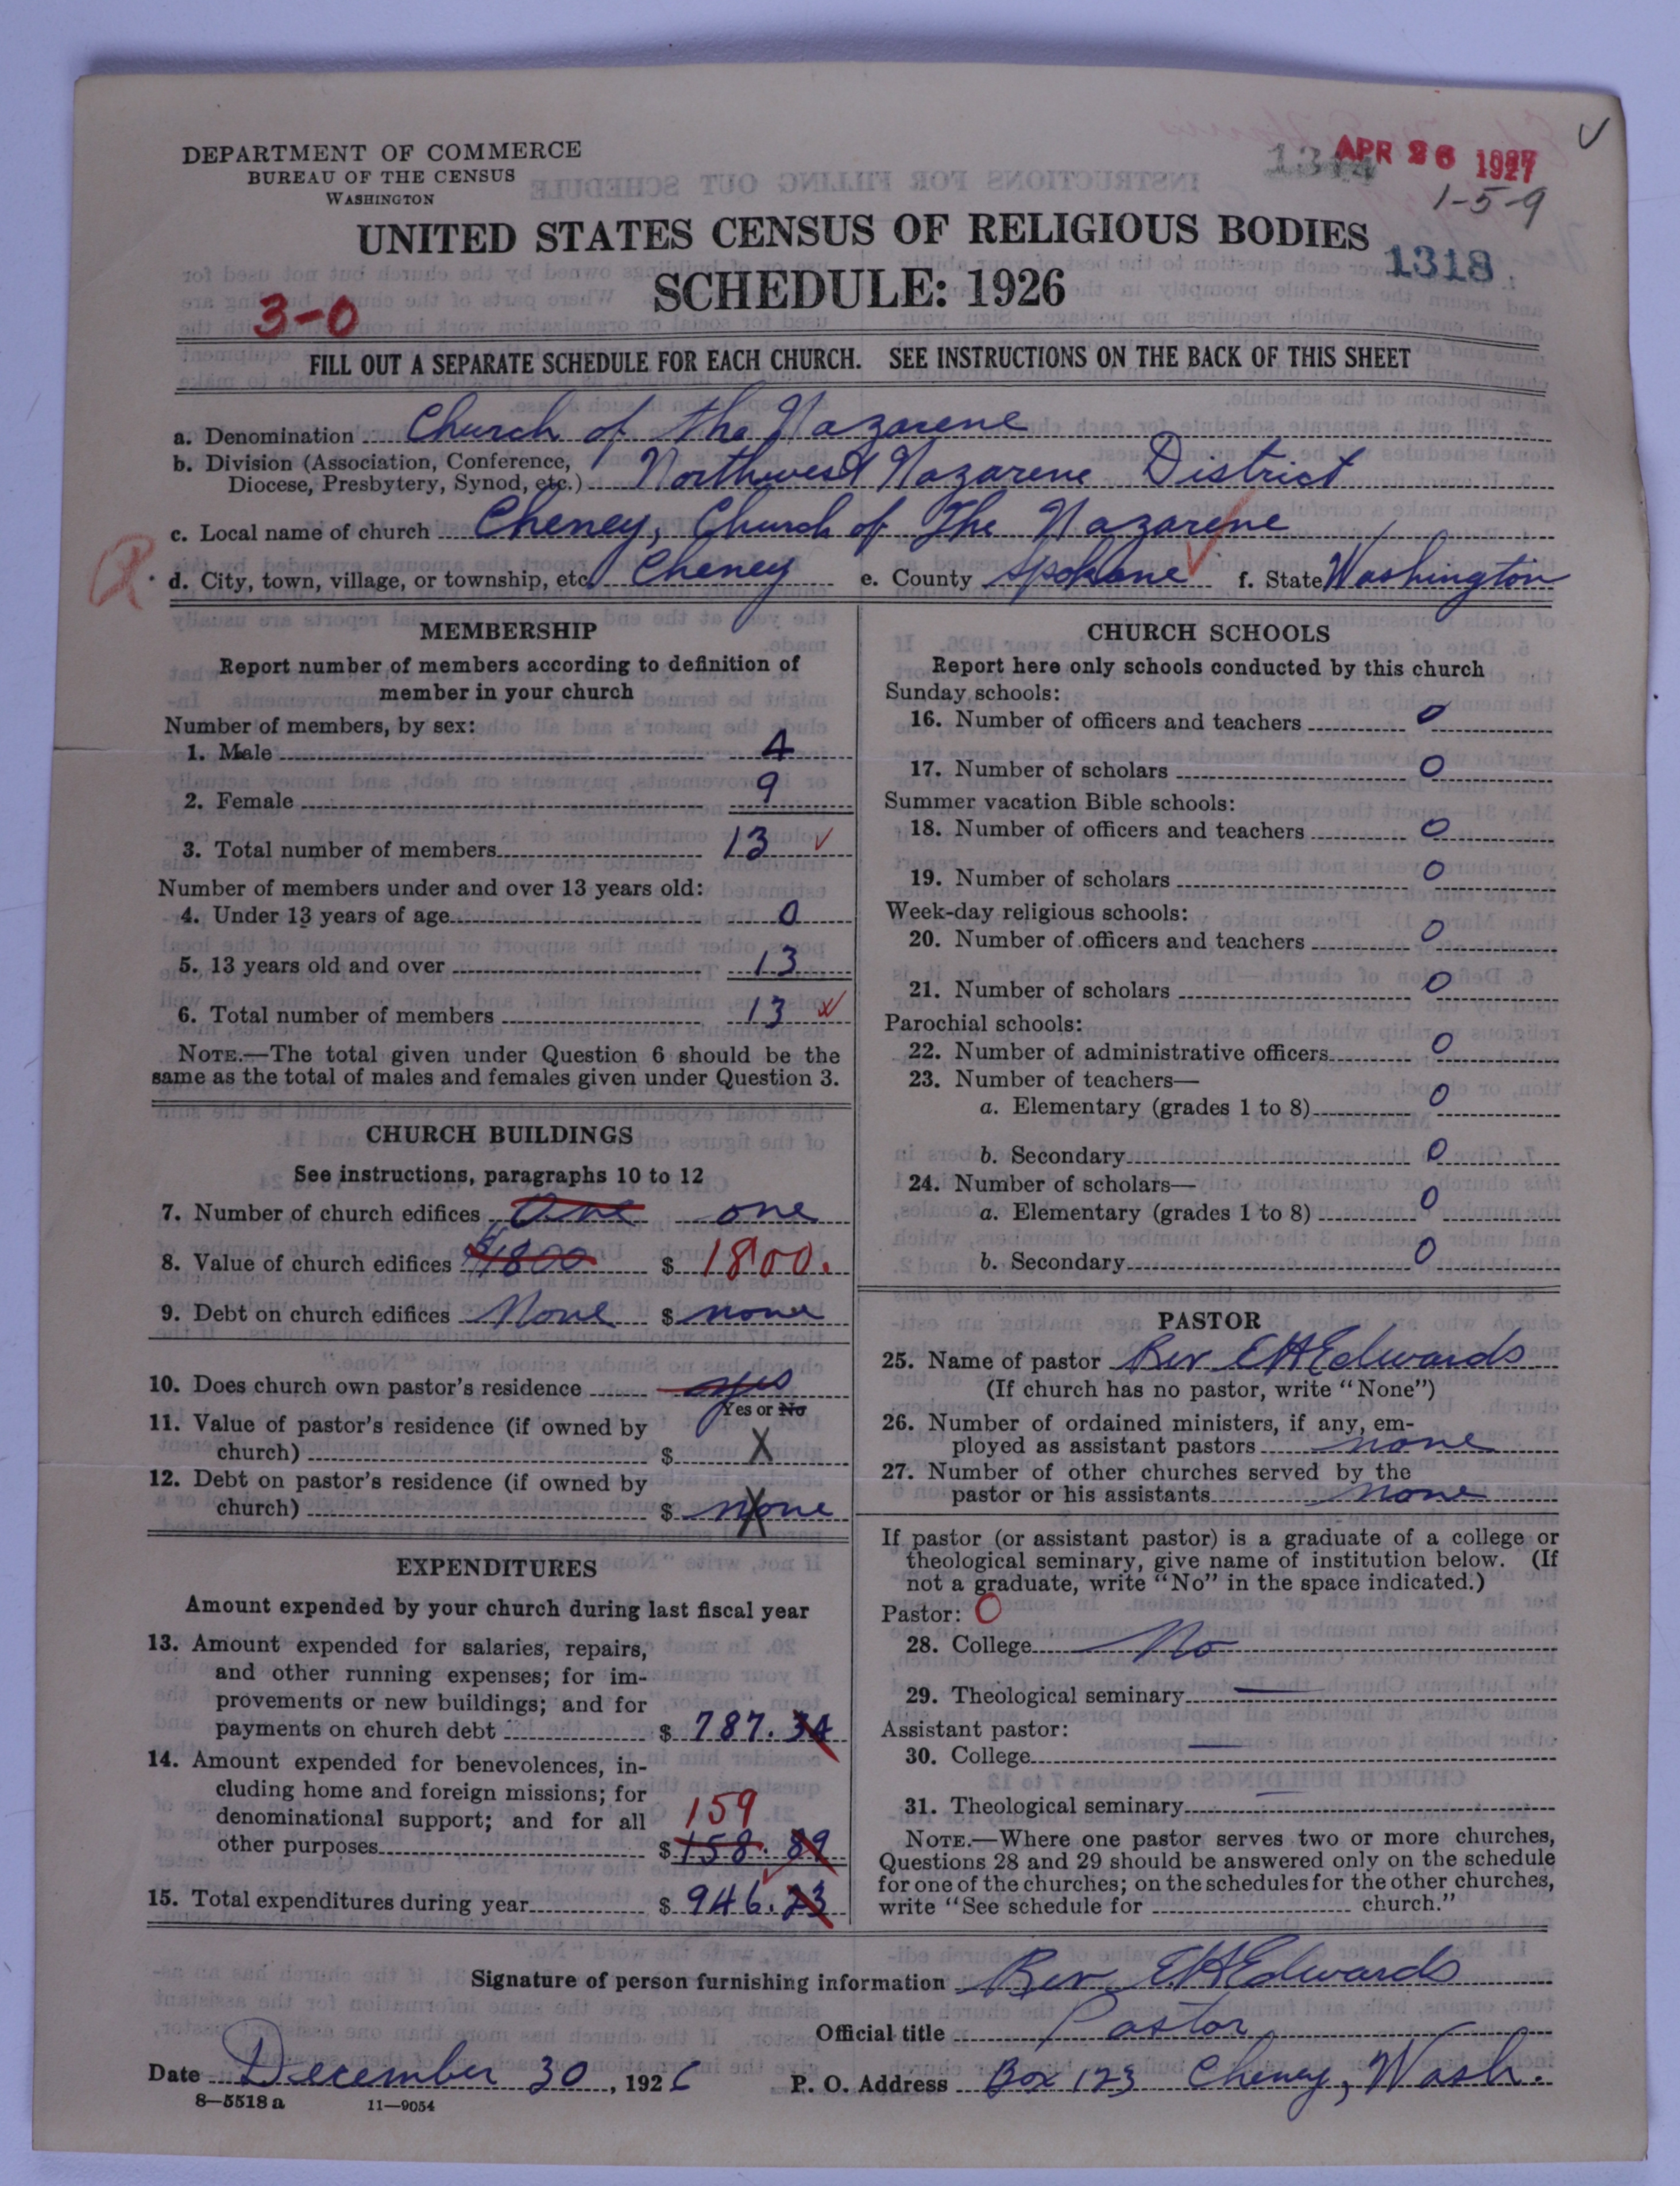 DEPARTMENT OF COMMERCE
BUREAU OF THE CENSUS
WASHINGTON
APR 26 1927
1-5-9
UNITED STATES CENSUS OF RELIGIOUS BODIES
1318
SCHEDULE: 1926
3-0
FILL OUT A SEPARATE SCHEDULE FOR EACH CHURCH. SEE INSTRUCTIONS ON THE BACK OF THIS SHEET
a. Denomination Church of the Nazarene
b. Division (Association, Conference,
Diocese, Presbytery, Synod, etc.) Northwest Nazarene District
c. Local name of church Cheney, Church of The Nazarene
d. City, town, village, or township, etc. Cheney e. County Spokane f. State Washington
MEMBERSHIP
Report number of members according to definition of
member in your church
Number of members, by sex:
1. Male 4
2. Female 9
3. Total number of members 13
Number of members under and over 13 years old:
4. Under 13 years of age 0
5. 13 years old and over 13
6. Total number of members 13
NOTE.—The total given under Question 6 should be the
same as the total of males and females given under Question 3.
CHURCH BUILDINGS
See instructions, paragraphs 10 to 12
7. Number of church edifices One one
8. Value of church edifices $1800 $ 1800.
9. Debt on church edifices None $ none
10. Does church own pastor's residence yes
Yes or No
11. Value of pastor's residence (if owned by
church) $ X
12. Debt on pastor's residence (if owned by
church) $ none
EXPENDITURES
Amount expended by your church during last fiscal year
13. Amount expended for salaries, repairs,
and other running expenses; for im-
provements or new buildings; and for
payments on church debt $ 787.34
14. Amount expended for benevolences, in-
cluding home and foreign missions; for
denominational support; and for all 159
other purposes $ 158.89
15. Total expenditures during year $ 946.23
CHURCH SCHOOLS
Report here only schools conducted by this church
Sunday schools:
16. Number of officers and teachers 0
17. Number of scholars 0
Summer vacation Bible schools:
18. Number of officers and teachers 0
19. Number of scholars 0
Week-day religious schools:
20. Number of officers and teachers 0
21. Number of scholars 0
Parochial schools:
22. Number of administrative officers 0
23. Number of teachers—
a. Elementary (grades 1 to 8) 0
b. Secondary 0
24. Number of scholars—
a. Elementary (grades 1 to 8) 0
b. Secondary 0
PASTOR
25. Name of pastor Rev E H Edwards
(If church has no pastor, write "None")
26. Number of ordained ministers, if any, em-
ployed as assistant pastors none
27. Number of other churches served by the
pastor or his assistants none
If pastor (or assistant pastor) is a graduate of a college or
theological seminary, give name of institution below. (If
not a graduate, write "No" in the space indicated.)
Pastor: 0
28. College No
29. Theological seminary
Assistant pastor:
30. College
31. Theological seminary
NOTE.—Where one pastor serves two or more churches,
Questions 28 and 29 should be answered only on the schedule
for one of the churches; on the schedules for the other churches,
write "See schedule for church."
Signature of person furnishing information Rev E H Edwards
Official title Pastor
Date December 30, 1926 P. O. Address Box 123 Cheney, Wash.
8—5518 a 11—9054